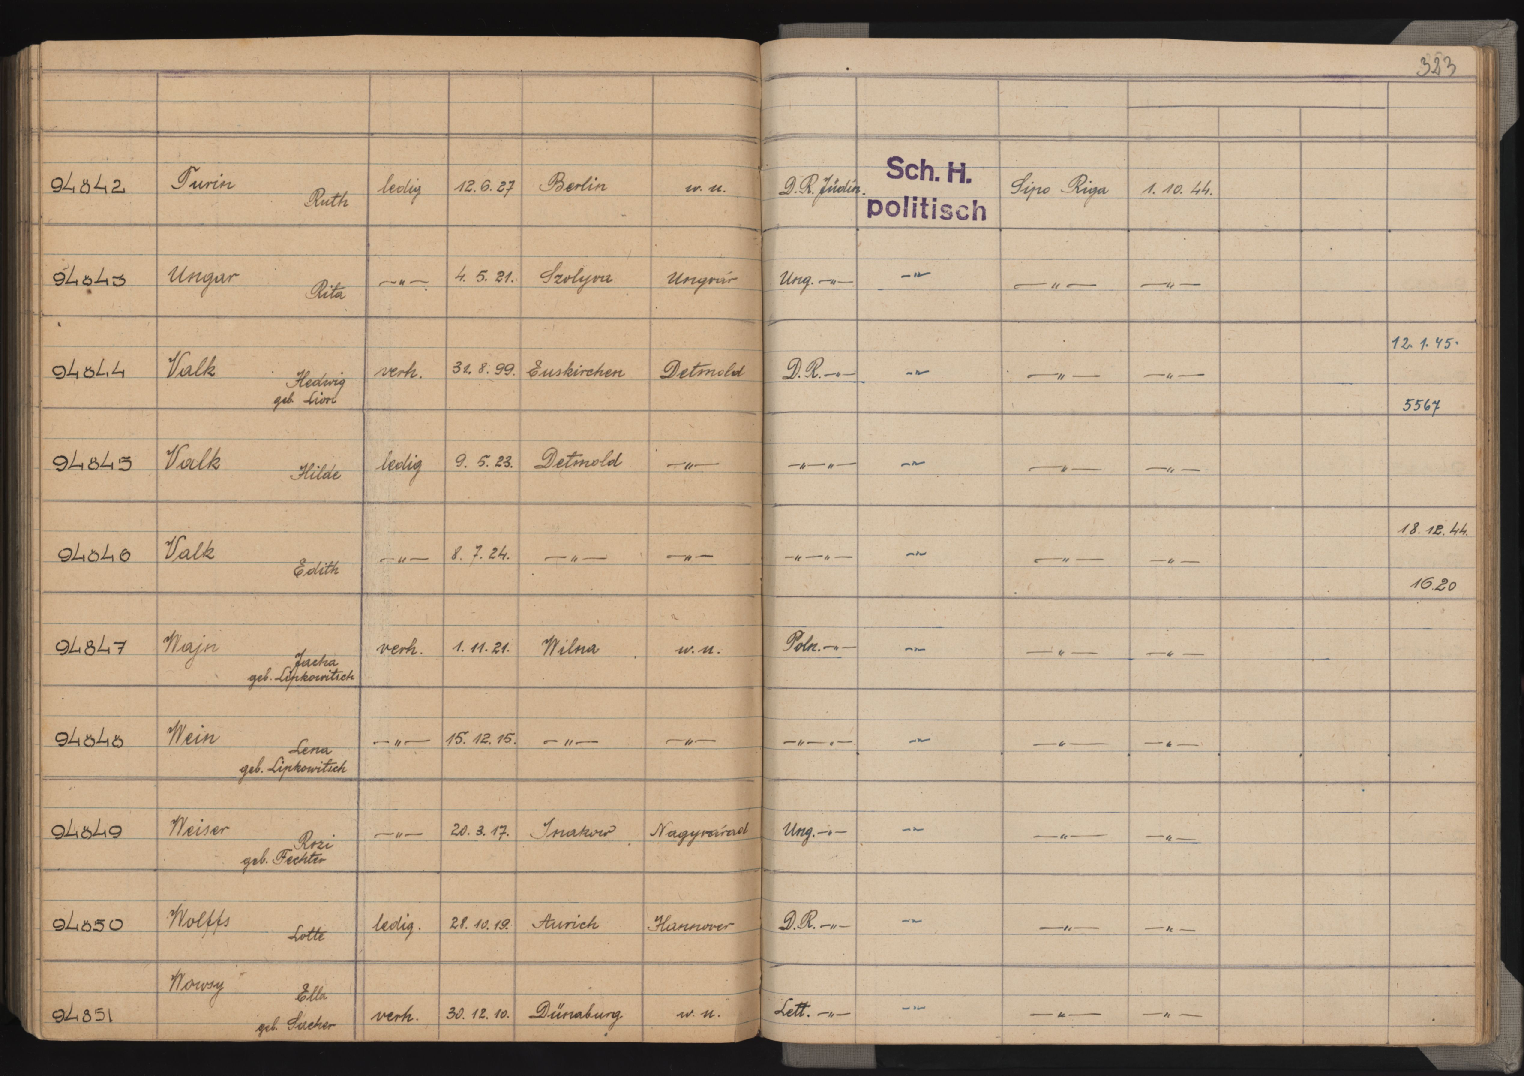 323
94842 Turin Ruth ledig 12.6.27 Berlin w. u. D.R. Jüdin. Sch. H. politisch Sipo Riga 1.10.44.
94843 Ungar Rita —"— 4.5.21. Szolyva Ungvár Ung. —"— —"— —"— —"—
94844 Valk Hedwig geb. Lion verh. 31.8.99. Euskirchen Detmold D.R. —"— —"— —"— —"— 12.1.45. 5567
94845 Valk Hilde ledig 9.5.23. Detmold —"— —"—"— —"— —"— —"—
94846 Valk Edith —"— 8.7.24. —"— —"— —"—"— —"— —"— —"— 18.12.44. 1620
94847 Wajn Jacha geb. Lipkowitsch verh. 1.11.21. Wilna w. u. Poln. —"— —"— —"— —"—
94848 Wein Lena geb. Lipkowitsch —"— 15.12.15. —"— —"— —"—"— —"— —"— —"—
94849 Weiser Rozi geb. Fechter —"— 20.3.17. Inakow Nagyvárad Ung. —"— —"— —"— —"—
94850 Wolffs Lotte ledig. 28.10.19. Aurich Hannover D.R. —"— —"— —"— —"—
94851 Wowsy Ella geb. Sacher verh. 30.12.10. Dünaburg. w. u. Lett. —"— —"— —"— —"—